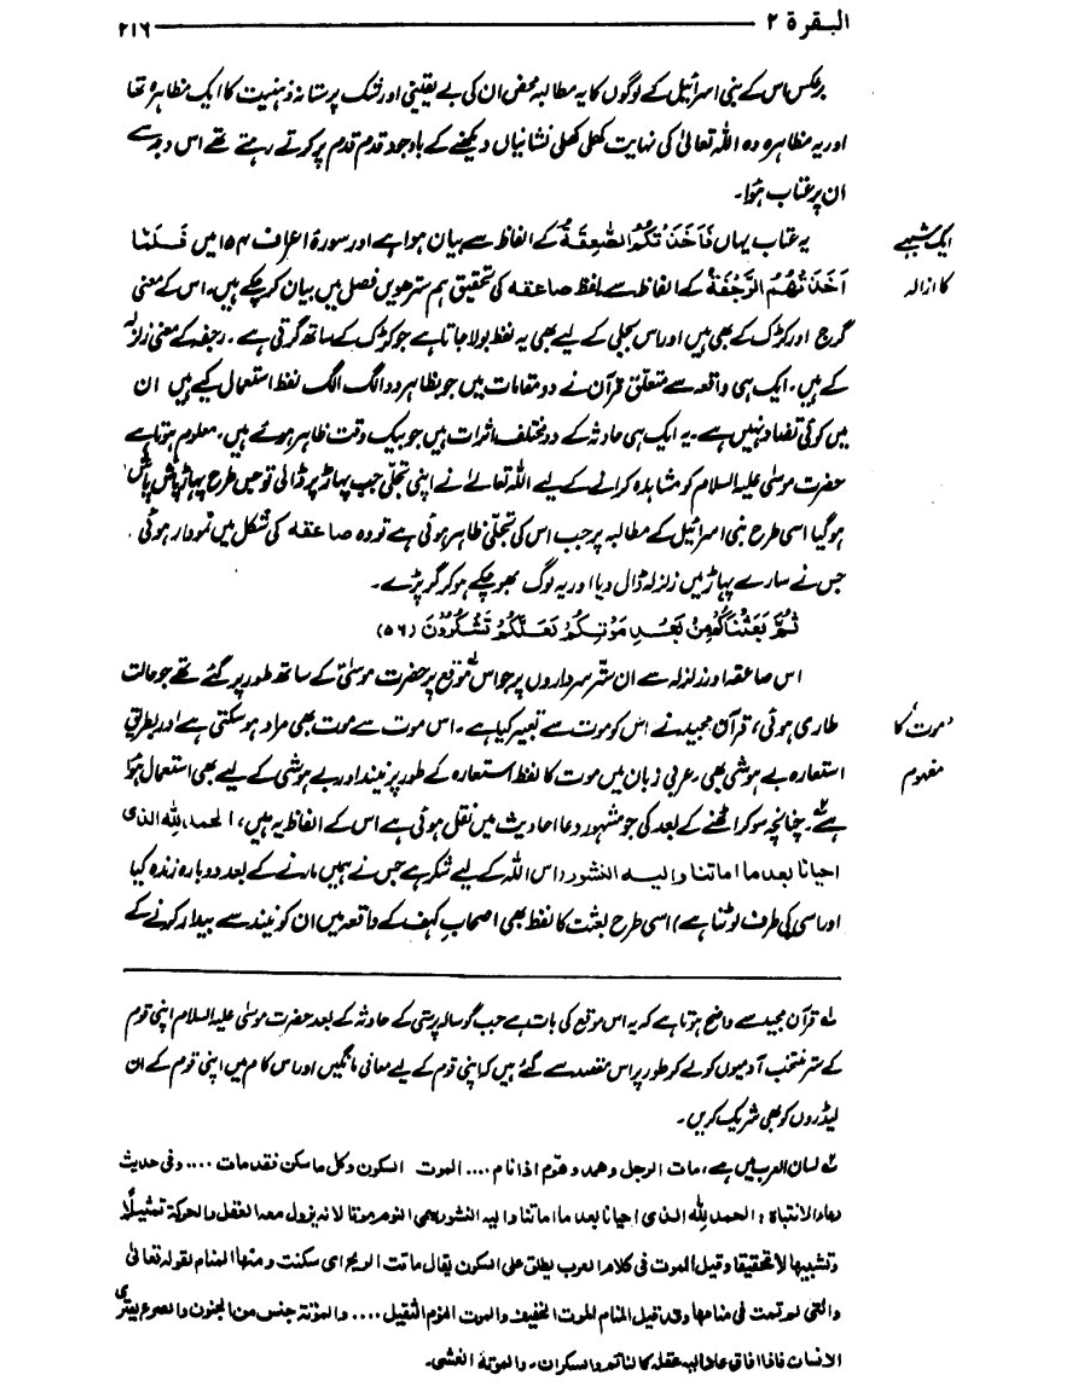 البقرة ۲ ۲۱۶
برعکس اس کے بنی اسرائیل کے لوگوں کا یہ مطالبہ محض ان کی بے یقینی اور شک پرستانہ ذہنیت کا ایک مظاہرہ تھا
اور یہ مظاہرہ وہ اللہ تعالیٰ کی نہایت کھلی کھلی نشانیاں دیکھنے کے باوجود قدم قدم پر کرتے رہتے تھے اس وجہ سے
ان پر عتاب ہُوا۔
ایک شبہے
کا ازالہ
یہ عتاب یہاں فَاَخَذَتْكُمُ الصّٰعِقَةُ کے الفاظ سے بیان ہوا ہے اور سورۂ اعراف ۱۵۴ میں فَلَمَّا
اَخَذَتْهُمُ الرَّجْفَةُ کے الفاظ سے۔ لفظ صاعقہ کی تحقیق ہم سترھویں فصل میں بیان کر چکے ہیں۔ اس کے معنی
گرج اور کڑک کے بھی ہیں اور اس بجلی کے لیے بھی یہ لفظ بولا جاتا ہے جو کڑک کے ساتھ گرتی ہے۔ رجفہ کے معنی زلزلہ
کے ہیں۔ ایک ہی واقعہ سے متعلق قرآن نے دو مقامات میں جو بظاہر دو الگ الگ لفظ استعمال کیے ہیں ان
میں کوئی تضاد نہیں ہے۔ یہ ایک ہی حادثہ کے دو مختلف اثرات ہیں جو بیک وقت ظاہر ہوئے ہیں۔ معلوم ہوتا ہے
حضرت موسٰی علیہ السلام کو مشاہدہ کرانے کے لیے اللہ تعالےٰ نے اپنی تجلّی جب پہاڑ پر ڈالی تو جس طرح پہاڑ پاش پاش
ہو گیا اسی طرح بنی اسرائیل کے مطالبہ پر جب اس کی تجلّی ظاہر ہوئی ہے تو وہ صاعقہ کی شکل میں نمودار ہوئی
جس نے سارے پہاڑ میں زلزلہ ڈال دیا اور یہ لوگ بھوچکے ہو کر گر پڑے۔
ثُمَّ بَعَثْنٰكُمْ مِّنْۢ بَعْدِ مَوْتِكُمْ لَعَلَّكُمْ تَشْكُرُوْنَ (۵۶)
اس صاعقہ اور زلزلہ سے ان ستّر سرداروں پر جو اس موقع پر حضرت موسٰیؑ کے ساتھ طور پر گئے تھے جو حالت
'موت' کا
مفہوم
طاری ہوئی، قرآن مجید نے اس کو موت سے تعبیر کیا ہے۔ اس موت سے موت بھی مراد ہو سکتی ہے اور بطریق
استعارہ بے ہوشی بھی۔ عربی زبان میں موت کا لفظ استعارہ کے طور پر نیند اور بے ہوشی کے لیے بھی استعمال ہُوا
ہے۔ چنانچہ سو کر اٹھنے کے بعد کی جو مشہور دعا احادیث میں نقل ہوئی ہے اس کے الفاظ یہ ہیں، الحمد للّٰہ الذی
احیانا بعد ما اماتنا والیہ النشور (اس اللہ کے لیے شکر ہے جس نے ہمیں مارنے کے بعد دوبارہ زندہ کیا
اور اسی کی طرف لوٹنا ہے) اسی طرح بعثت کا لفظ بھی اصحابِ کہف کے واقعہ میں ان کو نیند سے بیدار کرنے کے
لہ قرآن مجید سے واضح ہوتا ہے کہ یہ اس موقع کی بات ہے جب گوسالہ پرستی کے حادثہ کے بعد حضرت موسٰی علیہ السلام اپنی قوم
کے ستر منتخب آدمیوں کو لے کر طور پر اس مقصد سے گئے ہیں کہ اپنی قوم کے لیے معافی مانگیں اور اس کام میں اپنی قوم کے ان
لیڈروں کو بھی شریک کریں۔
لسان العرب میں ہے، مات الرجل وهمد وهوّم اذا نام .... الموت السكون وكل ما سكن فقد مات .... وفی حدیث
دعاء الانتباه: الحمد للّٰہ الذی احیانا بعد ما اماتنا والیہ النشور سمی النوم موتا لانه یزول معه العقل والحركة تمثیلًا
وتشبیها لا تحقیقا وقیل الموت فی كلام العرب یطلق علی السكون یقال ماتت الریح ای سكنت ومنها المنام لقوله تعالٰی
والتی لم تمت فی منامها وقد قیل المنام الموت الخفیف والموت النوم الثقیل .... والموتة جنس من الجنون والصرع یعتری
الانسان فاذا افاق عاد الیه عقله كالنائم والسكران۔ والموتة الغشی۔